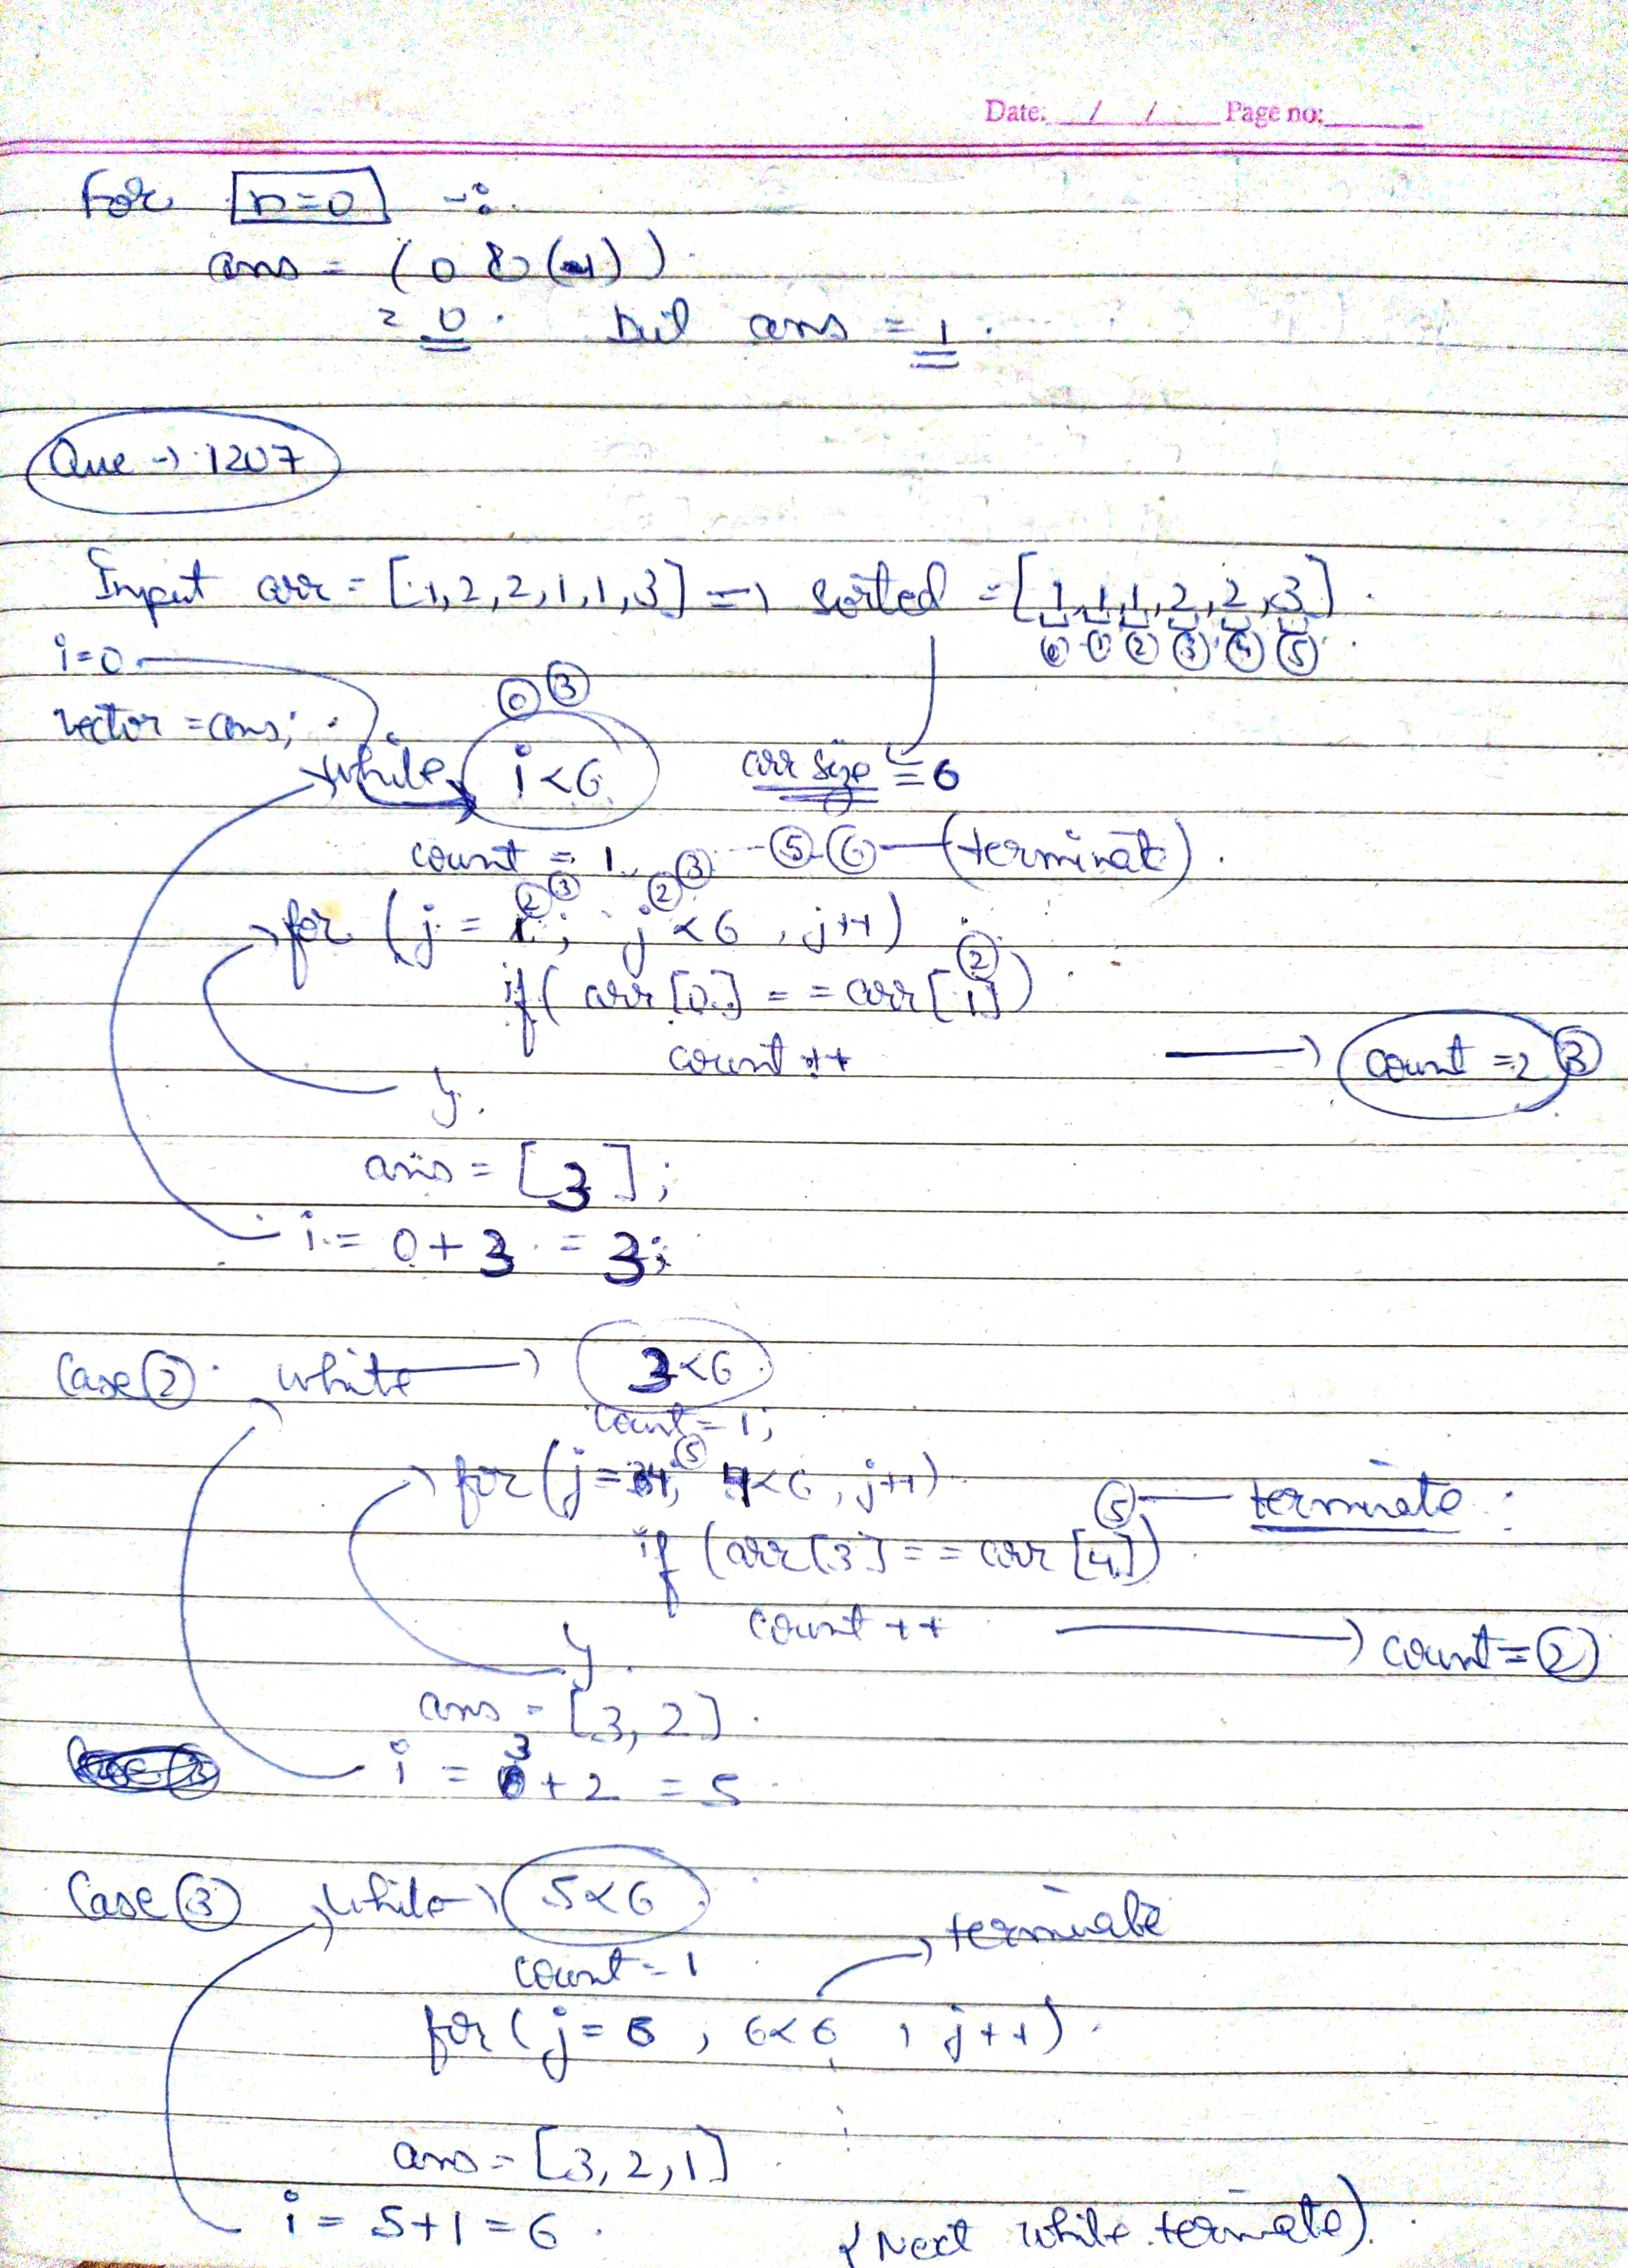 Date: / / Page no:
For n=0 -:
ans = (0 & (-1))
= 0. but ans = 1.
Que → 1207
Input arr = [1,2,2,1,1,3] => sorted = [1,1,1,2,2,3].
0 1 2 3 4 5
i=0
0 3
vector = ans;
while i<6 arr size = 6
count = 1 3 --- 5 6 — (terminate).
2 3 2
for (j = 1; j<6, j++)
2
if( arr[0] == arr[1])
count ++ → count = 2 3
}.
ans = [3];
i = 0+3 = 3;
Case 2 while → 3<6
count = 1;
5
for(j=4; 4<6, j++)
5 — terminate
if (arr[3] == arr[4])
count ++ → count = 2
}.
ans = [3,2].
3
i = +2 = 5
Case 3 while → 5<6
terminate
count = 1
for( j = 6 , 6<6 , j++)
ans = [3,2,1]
i = 5+1 = 6. (Next while terminate).